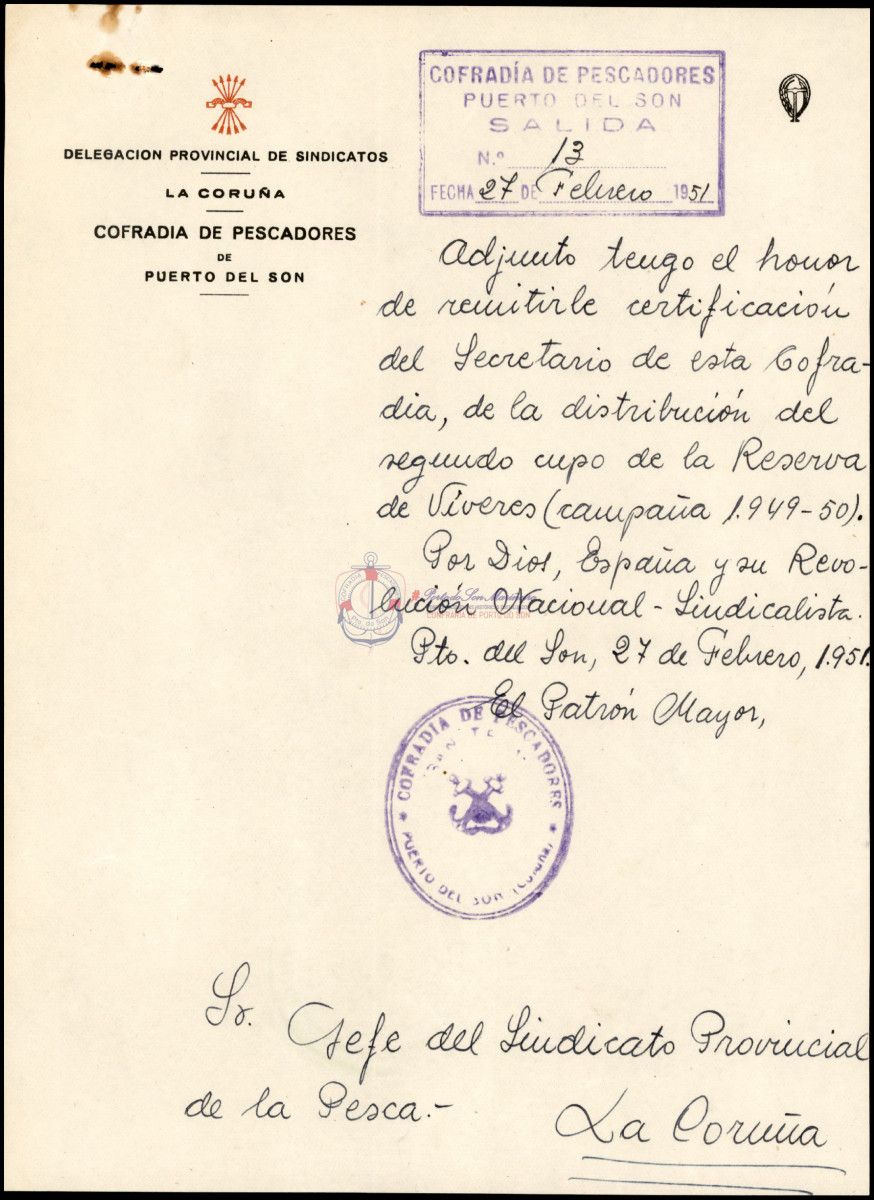 DELEGACION PROVINCIAL DE SINDICATOS
LA CORUÑA
COFRADIA DE PESCADORES
DE
PUERTO DEL SON
COFRADÍA DE PESCADORES
PUERTO DEL SON
SALIDA
N.º 13
FECHA 27 DE Febrero 1951
Adjunto tengo el honor
de remitirle certificación
del Secretario de esta Cofra-
dia, de la distribución del
segundo cupo de la Reserva
de Víveres (campaña 1.949-50).
Por Dios, España y su Revo-
lución Nacional-Sindicalista.
Pto. del Son, 27 de Febrero, 1.951.
El Patrón Mayor,
COFRADIA DE PESCADORES
PUERTO DEL SON (Coruña)
CONFRARÍA DE PORTO DO SON
Sr. Jefe del Sindicato Provincial
de la Pesca.-
La Coruña